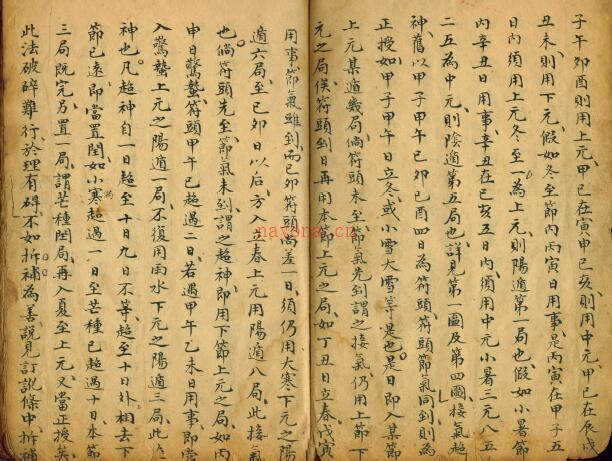 子午卯酉則用上元、甲已在寅申已亥則用中元、甲已在辰戌
丑未則用下元、假如冬至節內丙寅日用事、是丙寅在甲子五
日內須用上元冬至一為上元則陽遁第一局也、假如小暑節
內辛丑日用事、辛丑在已亥五日內須用中元小暑三元八五
二五為中元則陰遁第五局也詳見第一圖及第四圖接氣超
神舊以甲子甲午已卯已酉四日為符頭、符頭節氣同到則為
正授如甲子甲午日立冬或小雪大雪等是也是日即入某節
上元某遁幾局倘符頭未至節氣先到謂之接氣仍用上節下
元之局俟符頭到日再用本節上元之局、如丁丑日立春戊寅
用事節氣雖到而已卯符頭尚差一日須仍用大寒下元之陽
遁六局至已卯日以后方入立春上元用陽遁八局此接氣
也倘符頭先至節氣未到謂之超神即用下節上元之局如丙
申日驚蟄符頭甲午已超過二日若遇甲午乙未日用事即當
入驚蟄上元之陽遁一局不復用雨水下元之陽遁三局此
神也凡超神自一日超至十日九日不等超至十日外相去下
節已遠即當置閏如小寒超過一日至芒種已超過十日本節
三局既完另置一局謂芒種閏局再入夏至上元又當正授矣
此法破碎難行於理有碍不如拆補為善說見訂訛條中拆補
nayona.cn